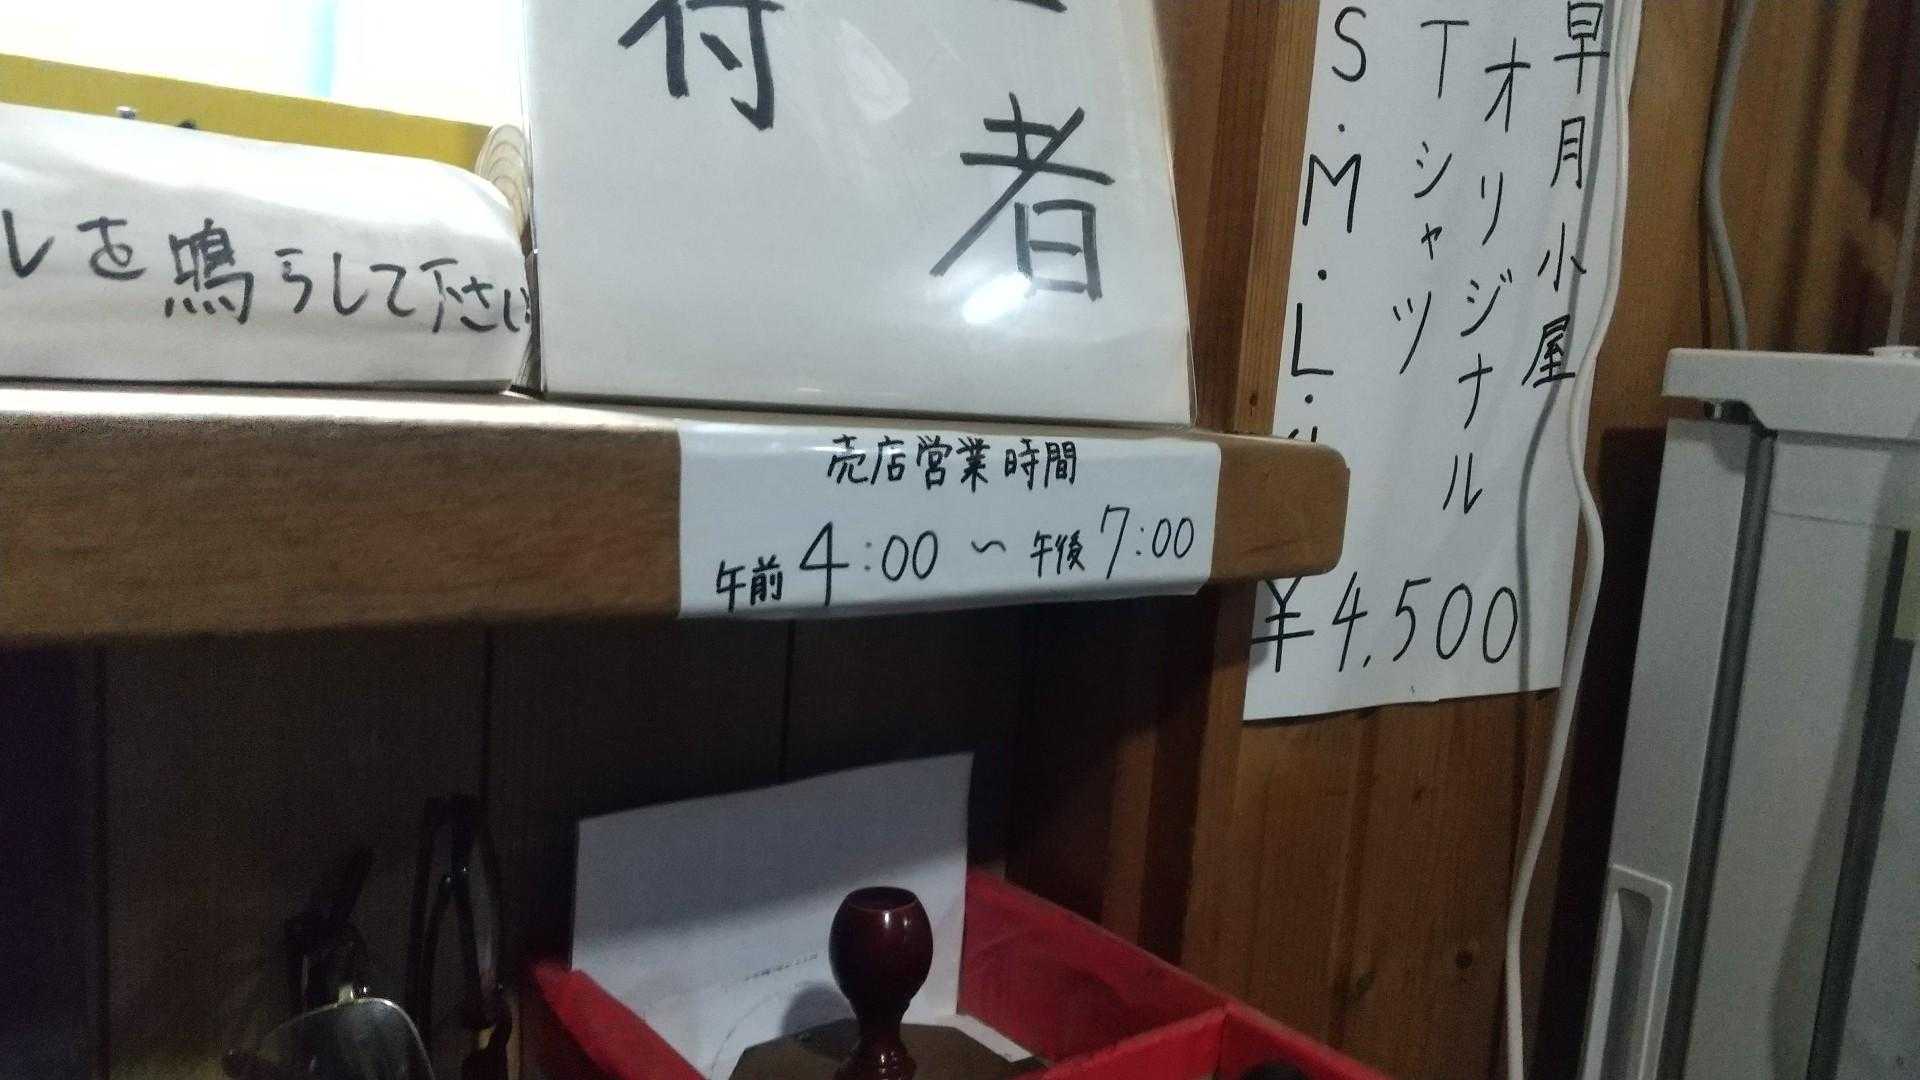 付
者
を鳴らして下さい
売店営業時間
午前 4:00 ~ 午後 7:00
早月小屋
オリジナル
Tシャツ
S・M・L・
¥4,500